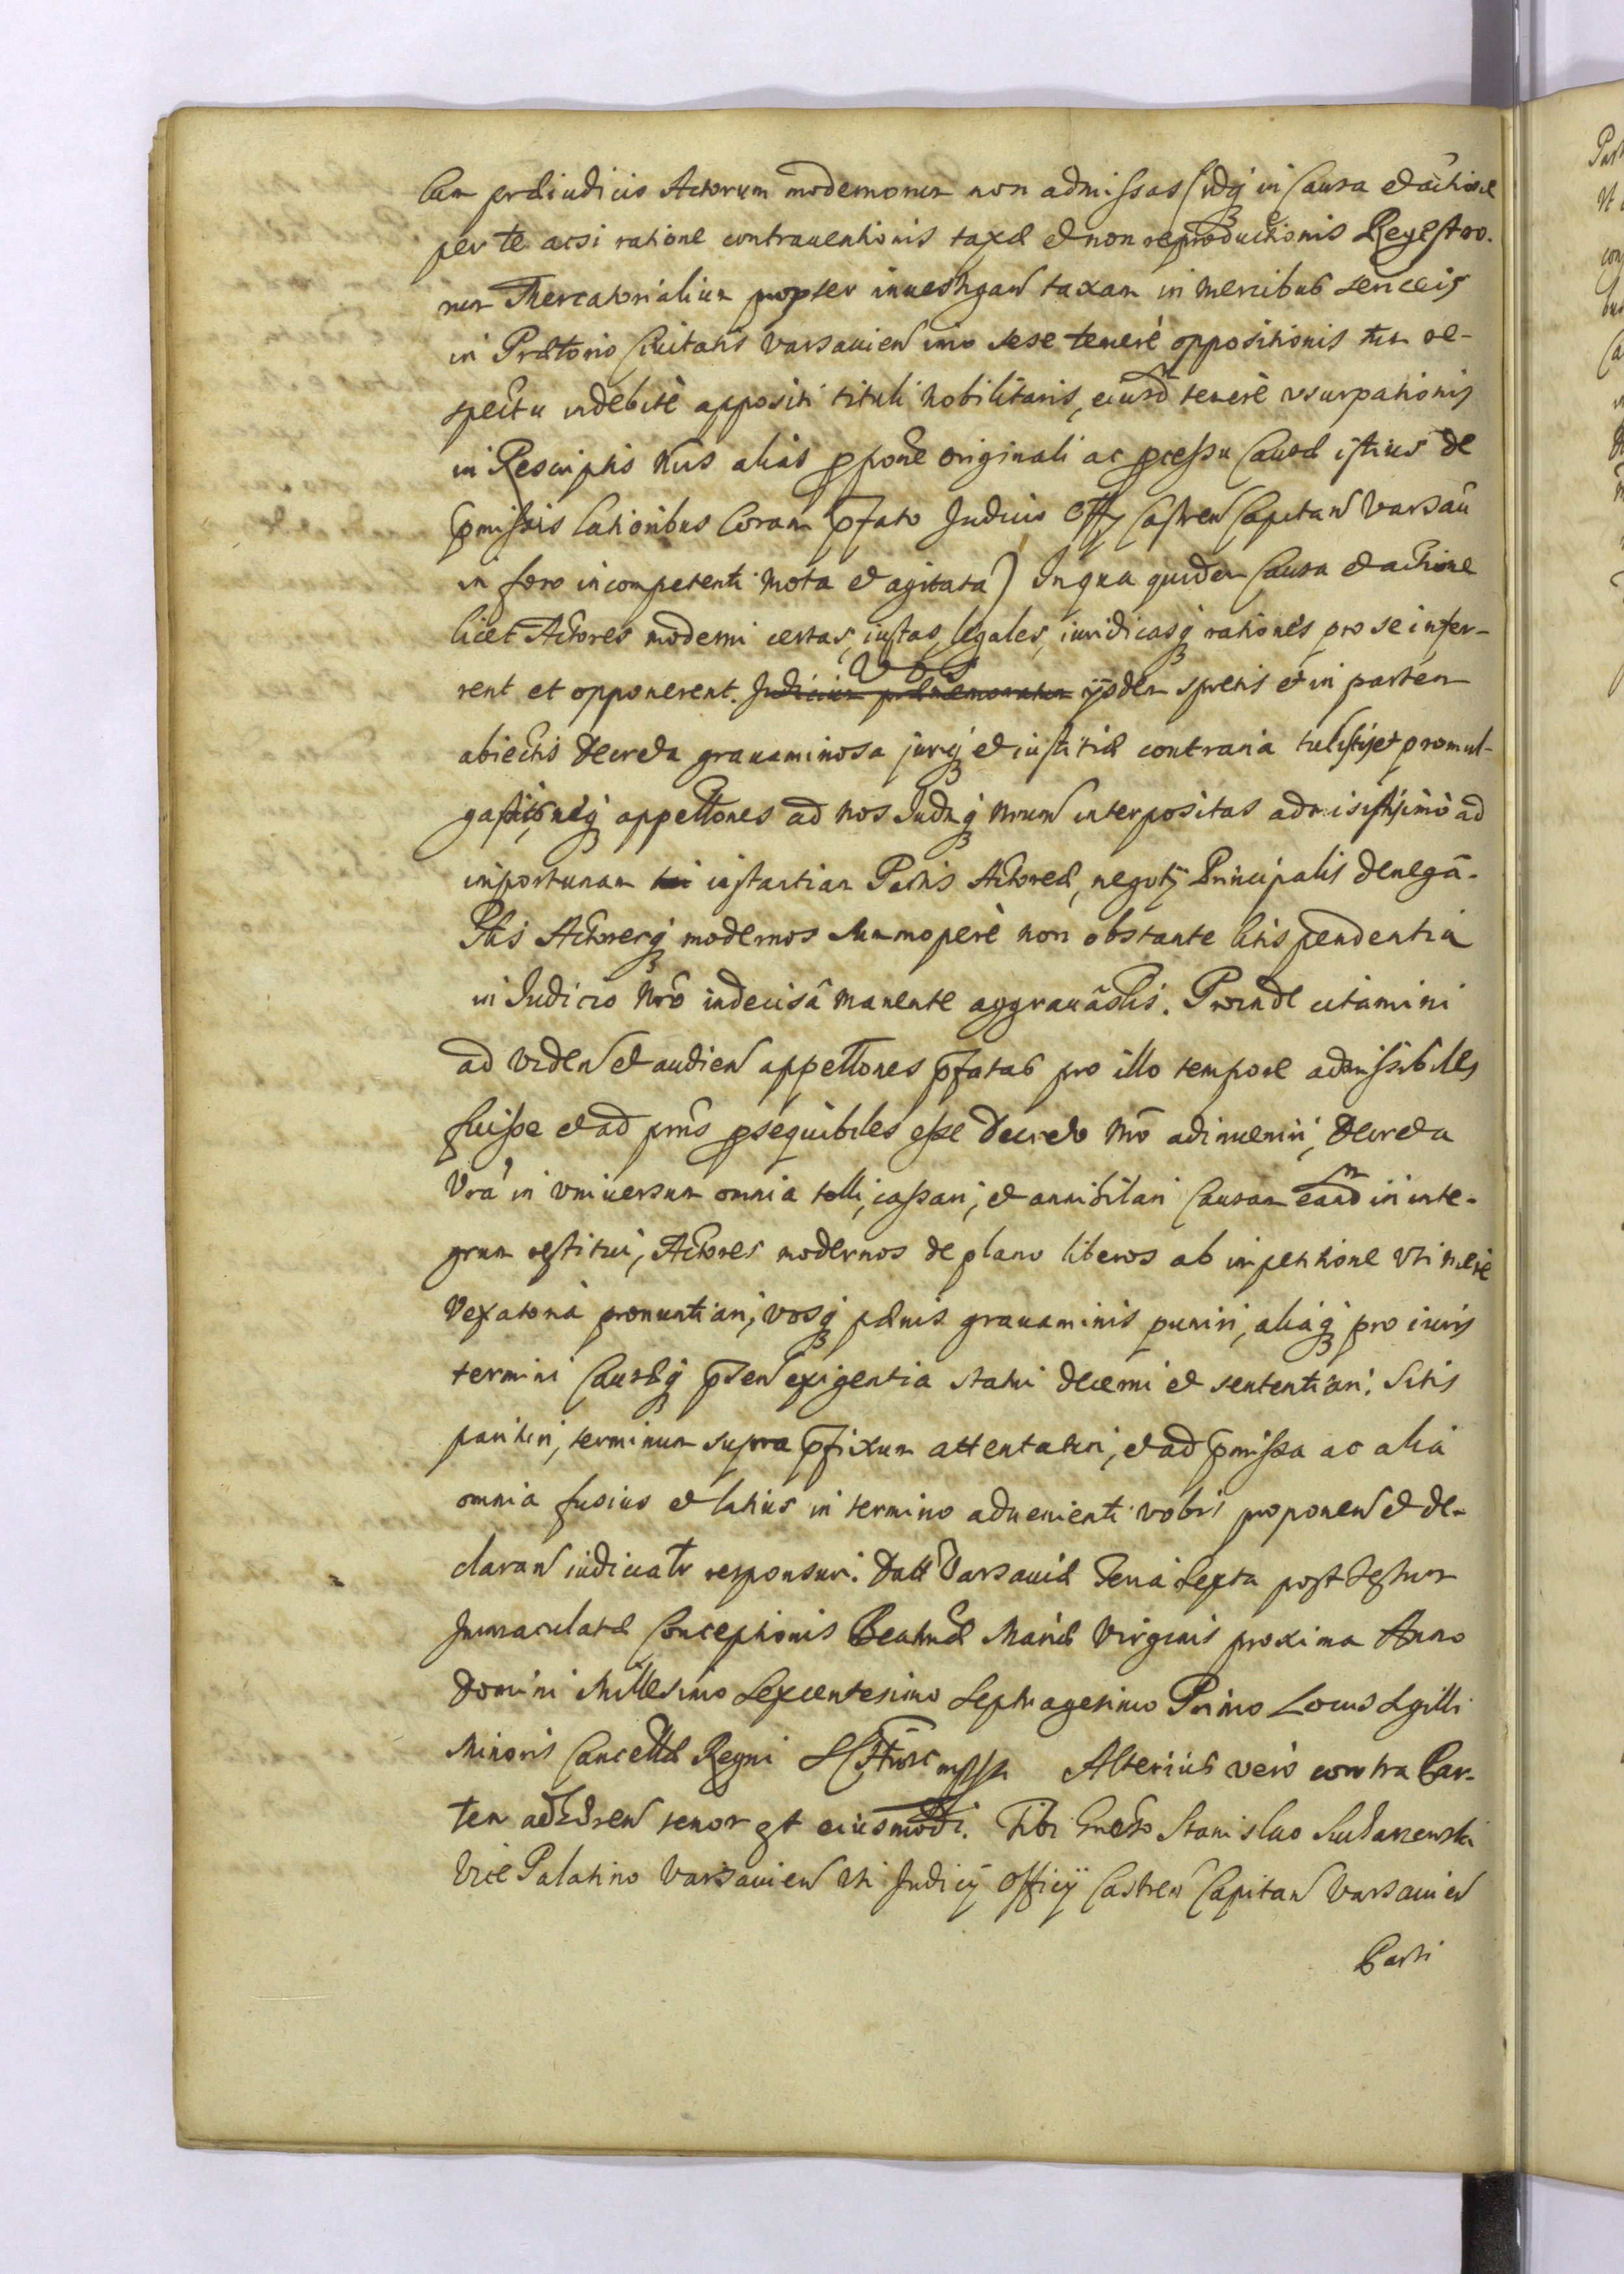 cum præiudicio Actorum modernorum non admissas (idq in Causa et actione
per te acsi ratione contrauentionis taxæ et non reproductionis Regestro-
rum Mercatorialium propter inuestigan taxam in mercibus sericeis
in Prætorio Ciuitatis Varsauien imo sese temerè oppositionis tum re-
spectu indebitè appositi tituli Nobilitaris, eiusdm temerè vsurpationis
in Rescriptis Nris aliàs ppone originali ac pcessu Causæ istius de
pmissis lationibus Coram pfato Judicio Offy Castren Capitan Varsau
in foro incompetenti mota et agitata) In qua quidem Causa et actione
licet Actores moderni certas, iustas, legales, iuridicasq rationes pro se infer-
rent et opponerent. Judicium præmemoratum Vos ijsdem spretis et in partem
abiectis Decreta grauaminosa jurjq et iustitiæ contraria tulistis et promul-
gastis, neq appellones ad Nos Judq Nrum interpositas admisistis imò ad
importunam instantiam Partis Actoreæ, negotÿ Principalis denegâ-
stis Actoresq modernos summoperè non obstante litispendentia
in Judicio Nrô indecisâ manente aggrauâstis. Proinde citamini
ad viden et audien appellones pfatas pro illo tempore admissibiles
fuisse et ad pns psequibiles esse Decreto Nrô adinueniri, Decreta
Vra in vniuersum omnia tolli, cassari, et annihilari Causam eandm in inte-
grum restitui, Actores modernos de plano liberos ab impetitione vti merè
vexatoria pronuntiari, vosq pænis grauaminis puniri, aliaq pro iuris
termini Causæq psen exigentia statui decerni et sententiari. Sitis
parituri, terminum supra pfixum attentaturi, et ad pmissa ac alia
omnia fusius et latius in termino aduenienti vobis proponen et de-
claran iudicialr responsuri. Datt Varsauiæ Feria Sexta post Festum
Immaculatæ Conceptionis Beatmæ Mariæ Virginis proxima Anno
Domini Millesimo Sexcentesimo Septuagesimo Primo Locus Sgilli
Minoris Cancellæ Regni Alterius verò contra Par-
tem adhæren tenor est eiusmodi. Tibi Grnso Stanislao
Vice Palatino Varsauien vti Judicÿ Officÿ Castren Capitan Varsauien
Parti